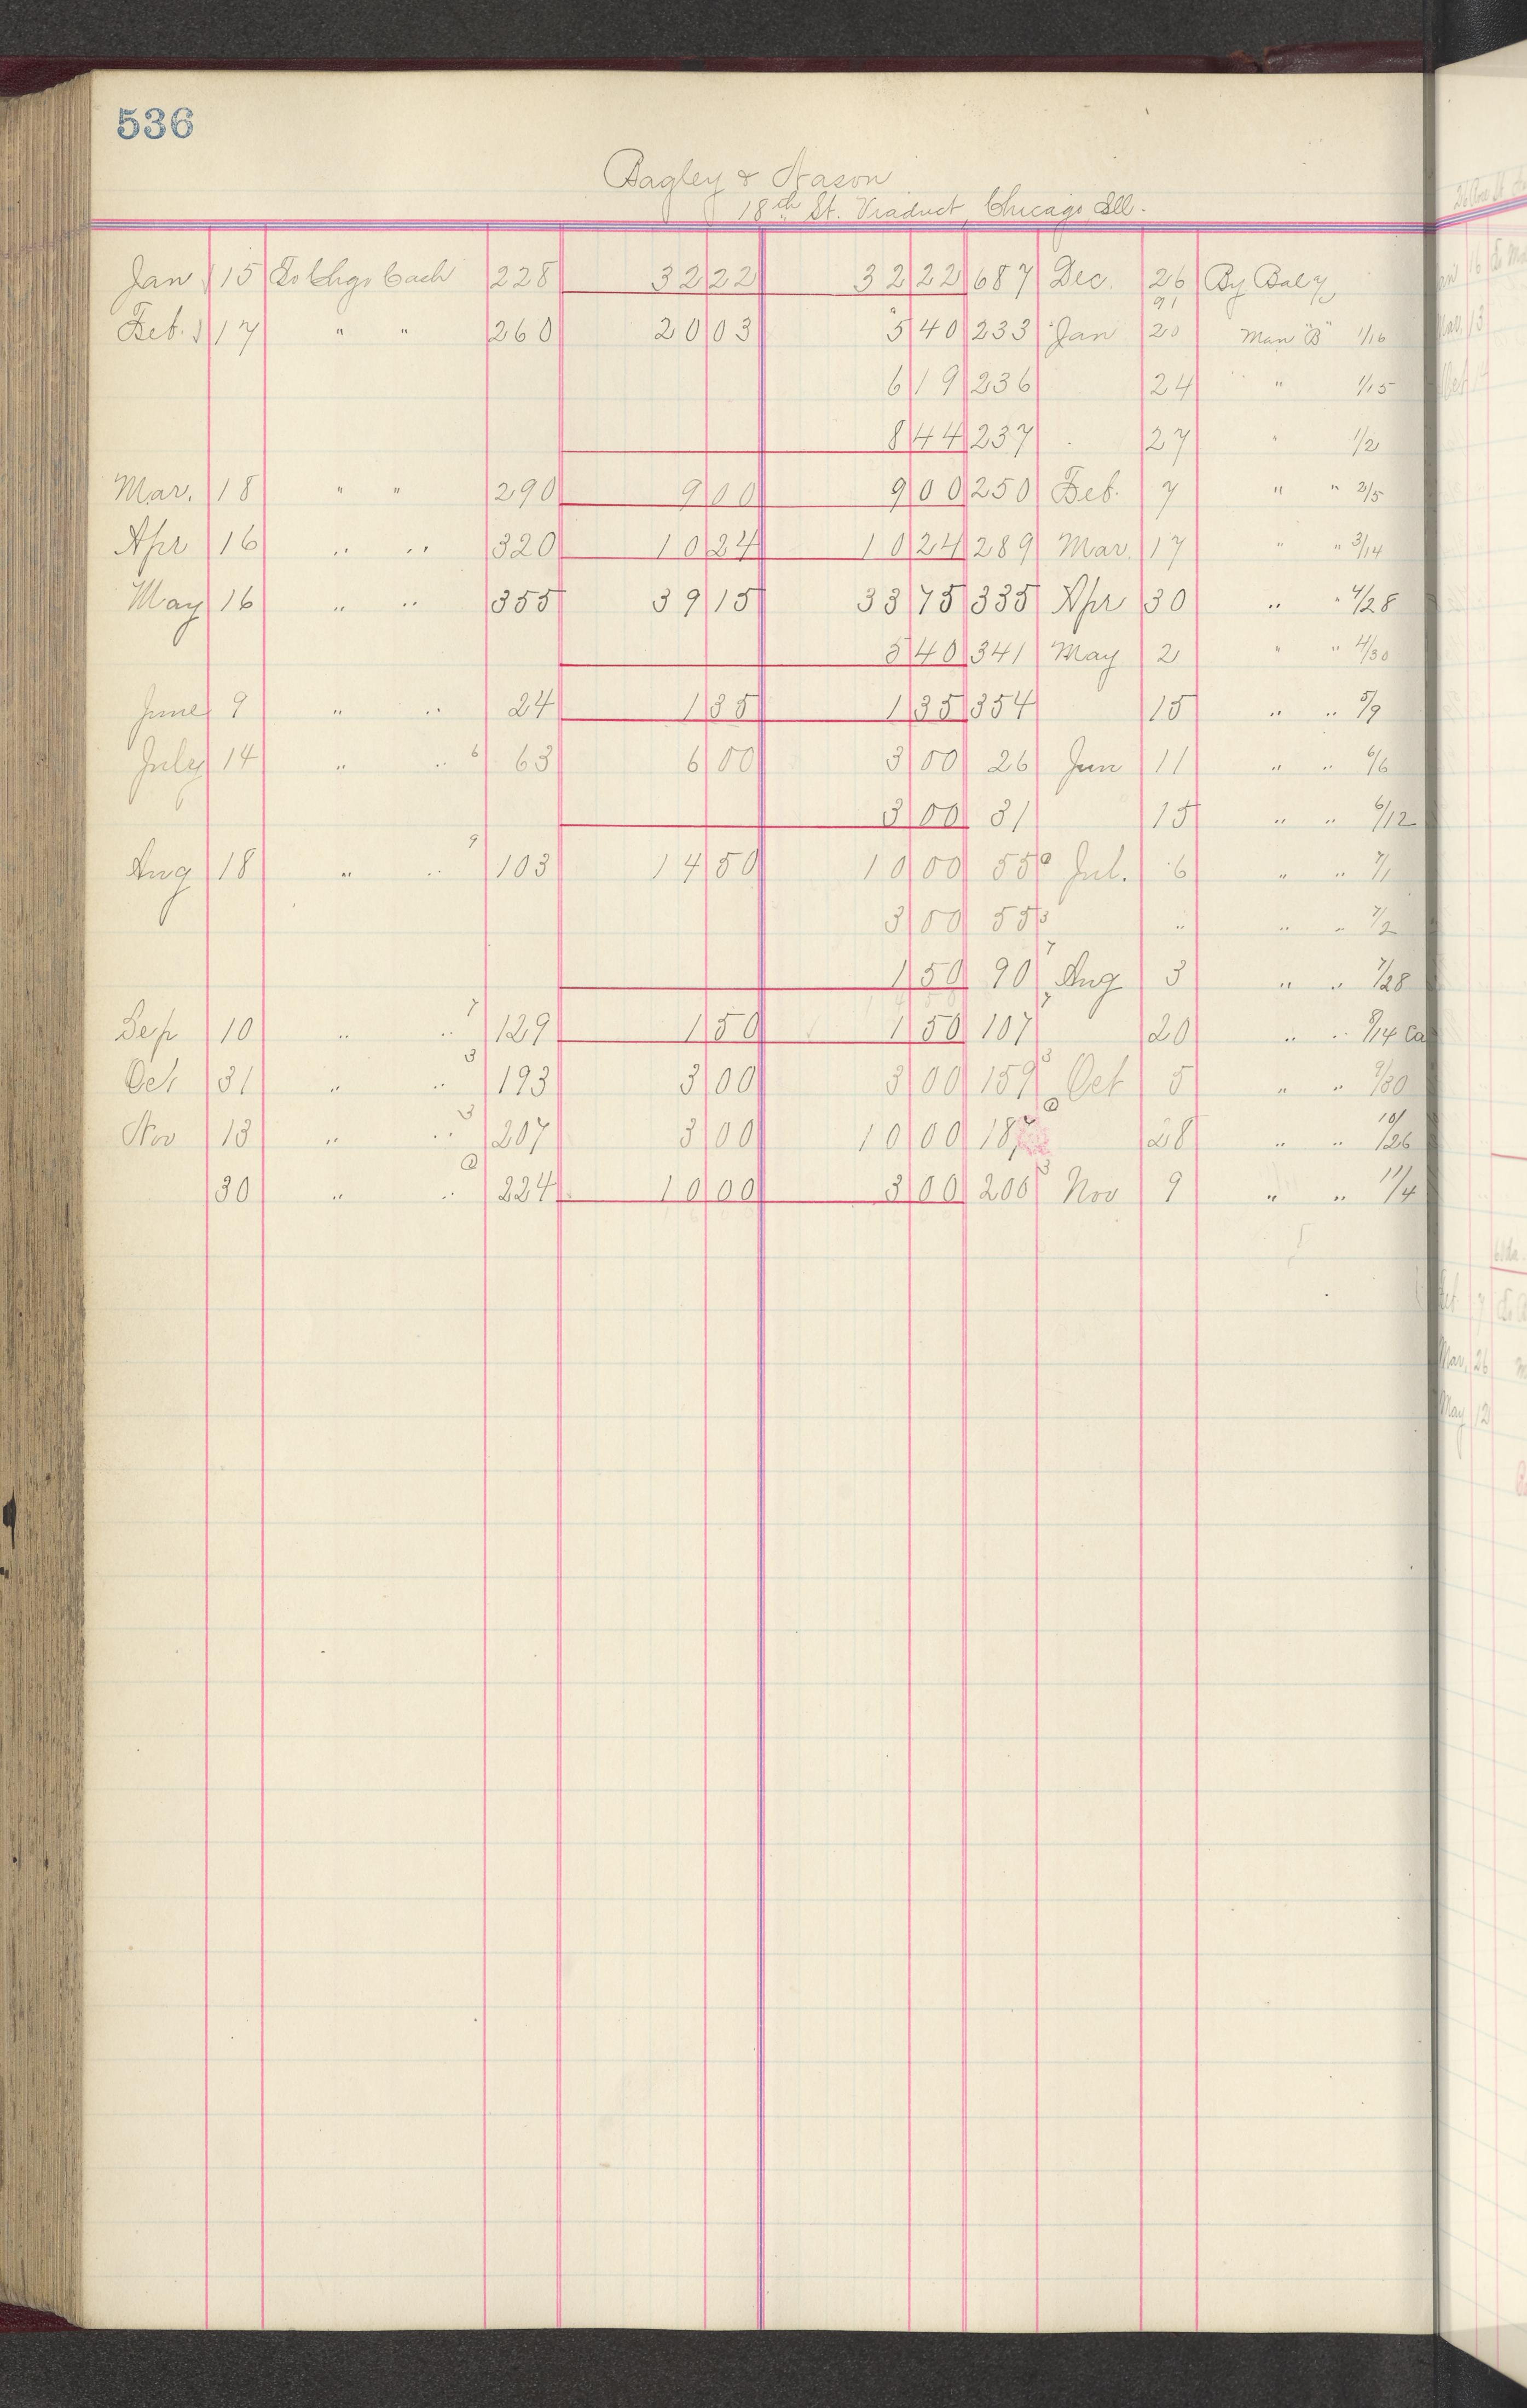 536
Bagley & Nason
18th St. Viaduct, Chicago Ill.
Jan 15 To Chgo Cash 228 32 22 32 22 687 Dec. 26 By Bal
91
Feb. 17 " " 260 20 03 5 40 233 Jan 20 Man "B" 1/16
6 19 236 24 " 1/15
8 44 237 27 " 1/2
Mar. 18 " " 290 9 00 9 00 250 Feb. 7 " " 2/5
Apr 16 " " 320 10 24 10 24 289 Mar. 17 " " 3/14
May 16 " " 355 39 15 33 75 335 Apr 30 " " 4/28
5 40 341 May 2 " " 4/30
June 9 " " 24 1 35 1 35 354 15 " " 5/9
July 14 " " 6 63 6 00 3 00 26 Jun 11 " " 6/6
3 00 31 15 " " 6/12
Aug 18 " " 9 103 14 50 10 00 55 Jul. 6 " " 7/1
3 00 55 3 " " " 7/2
1 50 90 7 Aug 3 " " 7/28
Sep 10 " " 7 129 1 50 1 50 107 7 20 " " 8/14 Ca
Oct 31 " " 3 193 3 00 3 00 159 3 Oct 5 " " 9/30
Nov 13 " " 3 207 3 00 10 00 187 28 " " 10/26
30 " " 224 10 00 3 00 206 3 Nov 9 " " 11/4